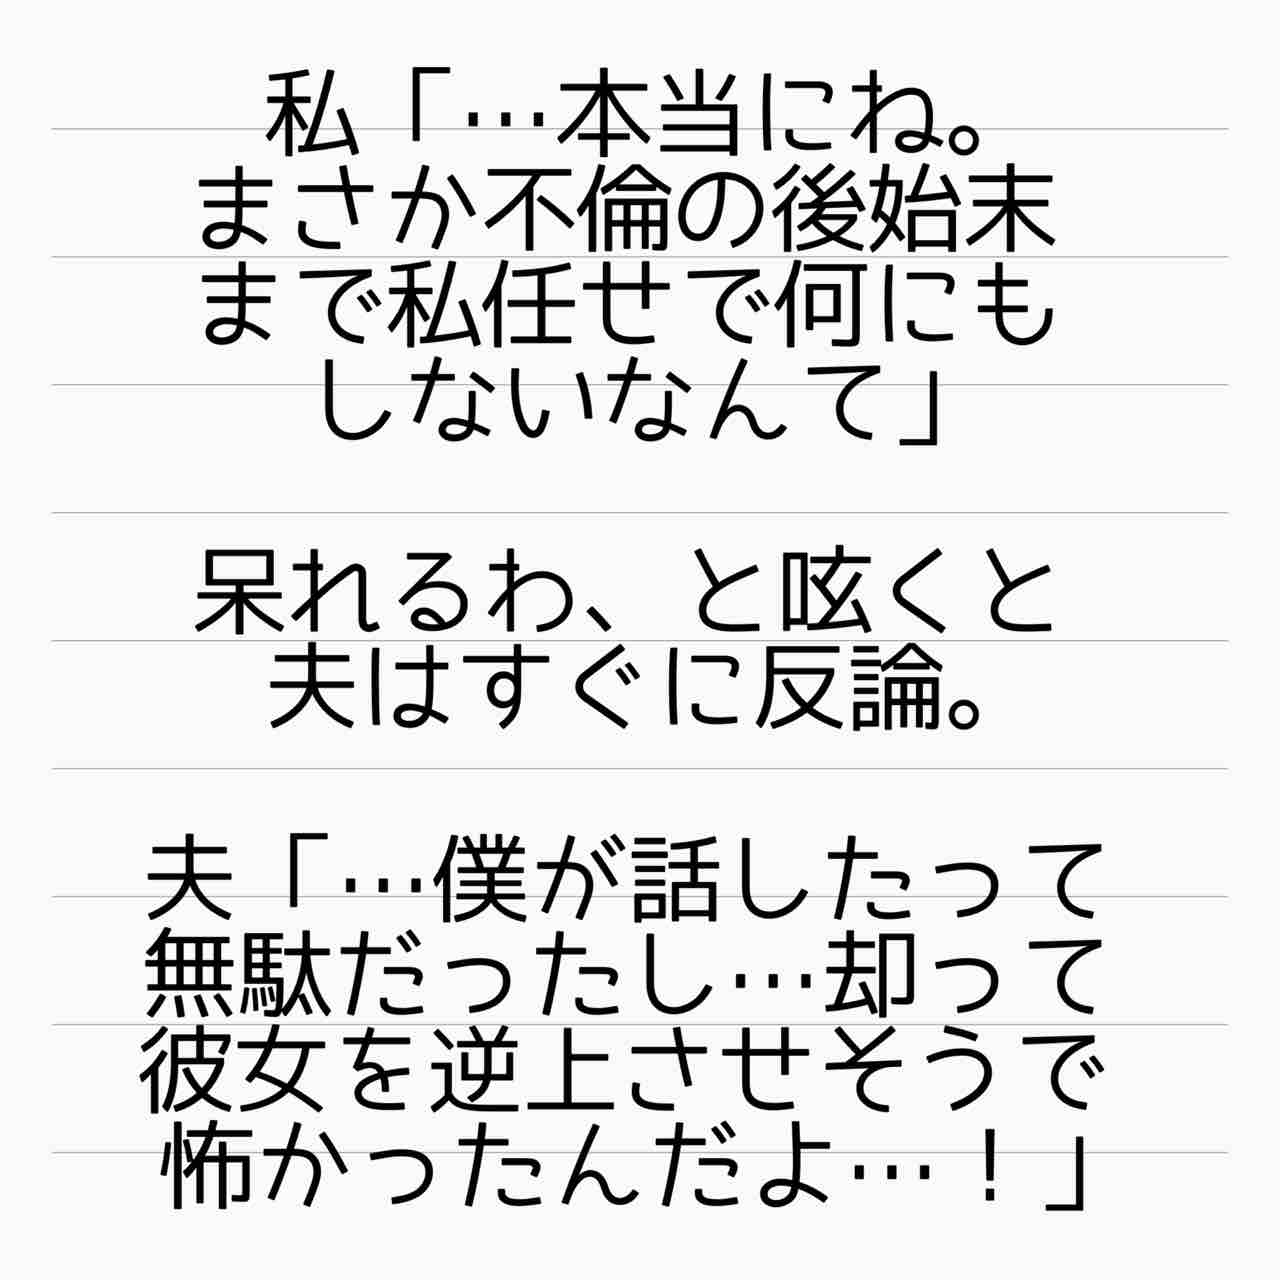 私「…本当にね。
まさか不倫の後始末
まで私任せで何にも
しないなんて」
呆れるわ、と呟くと
夫はすぐに反論。
夫「…僕が話したって
無駄だったし…却って
彼女を逆上させそうで
怖かったんだよ…！」